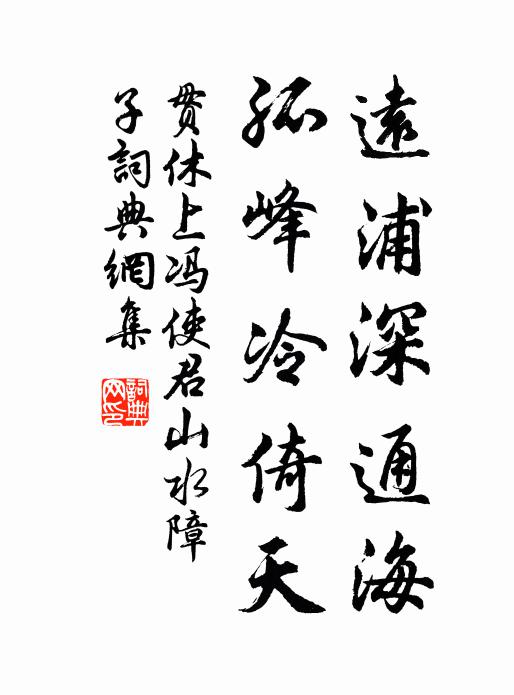 遠浦深通海
孤峰冷倚天
貫休上冯使君山水障
子詞典網集
詞典網印